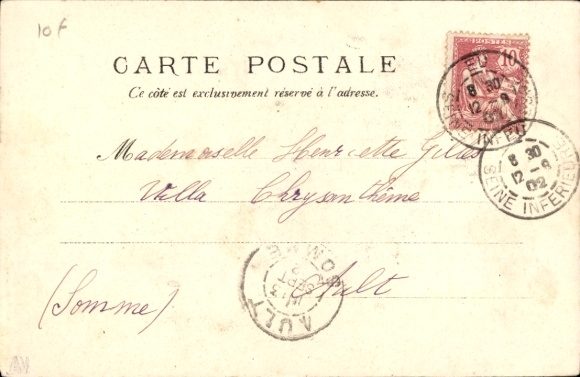 10 F
POSTES
10
CARTE POSTALE
Ce côté est exclusivement réservé à l'adresse.
EU
8 30
12 - 9
02
SEINE INFÉRIEURE
8 30
12 - 9
02
SEINE INFERIEURE
Mademoiselle Henriette Gilles
Villa Chrysanthème
Ault
(Somme)
AULT
SOMME
13
SEPT